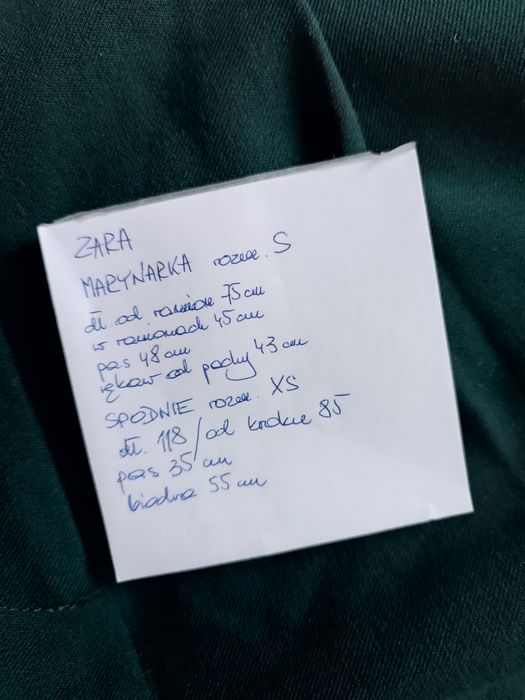 ZARA
MARYNARKA rozm. S
dł. od ramion 75 cm
w ramionach 45 cm
pas 48 cm
rękaw od pachy 43 cm
SPODNIE rozm. XS
dł. 118/od kroku 85
pas 35 cm
biodra 55 cm